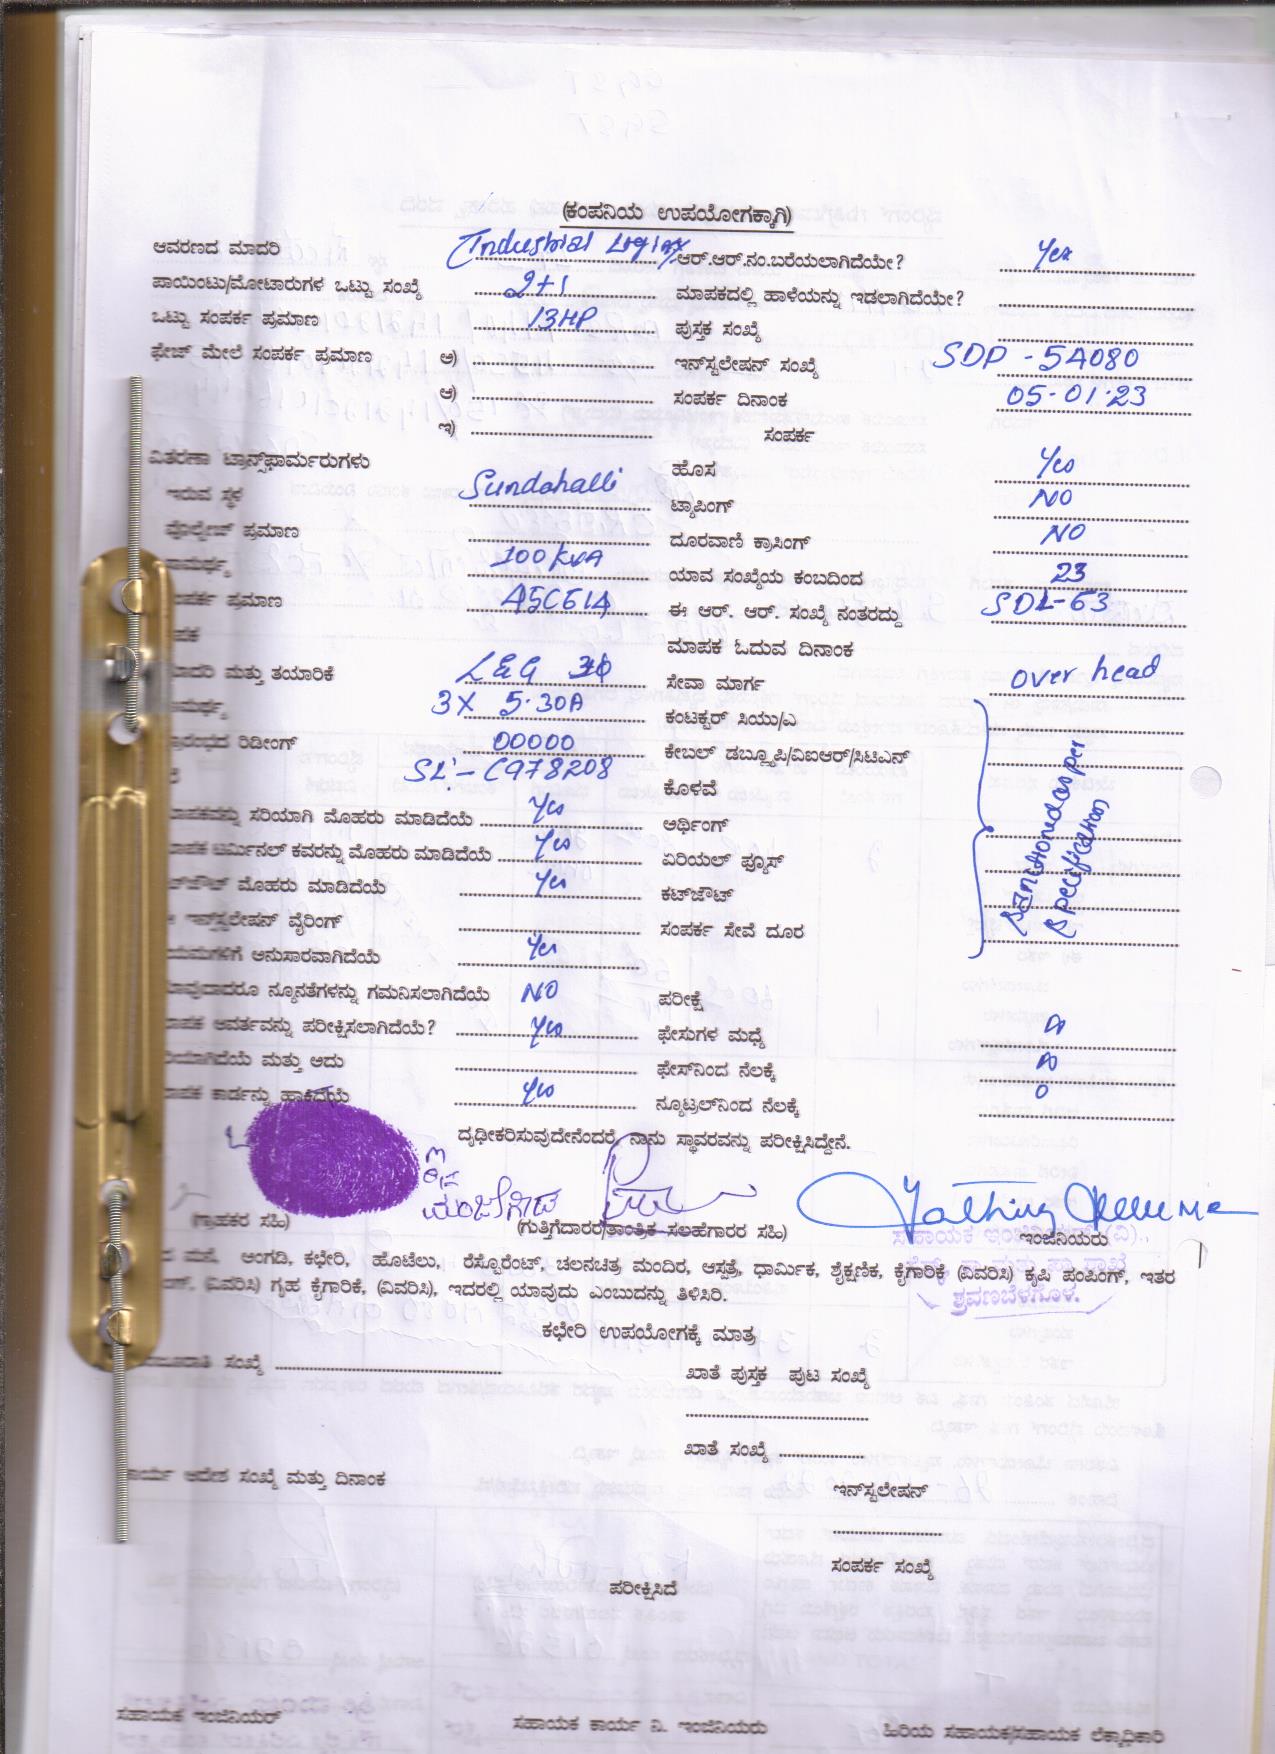 (ಕಂಪನಿಯ ಉಪಯೋಗಕ್ಕಾಗಿ)
ಆವರಣದ ಮಾದರಿ Industrial ಆರ್.ಆರ್.ನಂ.ಬರೆಯಲಾಗಿದೆಯೇ? Yes
ಪಾಯಿಂಟು/ಮೋಟಾರುಗಳ ಒಟ್ಟು ಸಂಖ್ಯೆ 2+1 ಮಾಪಕದಲ್ಲಿ ಹಾಳೆಯನ್ನು ಇಡಲಾಗಿದೆಯೇ?
ಒಟ್ಟು ಸಂಪರ್ಕ ಪ್ರಮಾಣ 13HP ಪುಸ್ತಕ ಸಂಖ್ಯೆ
ಫೇಜ್ ಮೇಲೆ ಸಂಪರ್ಕ ಪ್ರಮಾಣ ಅ) ಇನ್‌ಸ್ಟಲೇಷನ್ ಸಂಖ್ಯೆ SDP-54080
ಆ) ಸಂಪರ್ಕ ದಿನಾಂಕ 05-01-23
ಇ) ಸಂಪರ್ಕ
ವಿತರಣಾ ಟ್ರಾನ್ಸ್‌ಫಾರ್ಮರುಗಳು ಹೊಸ Yes
ಇರುವ ಸ್ಥಳ Sundahalli ಟ್ಯಾಪಿಂಗ್ NO
ವೋಲ್ಟೇಜ್ ಪ್ರಮಾಣ ದೂರವಾಣಿ ಕ್ರಾಸಿಂಗ್ NO
100 KVA ಯಾವ ಸಂಖ್ಯೆಯ ಕಂಬದಿಂದ 23
ಪ್ರಮಾಣ ಈ ಆರ್. ಆರ್. ಸಂಖ್ಯೆ ನಂತರದ್ದು SDL-63
ಮಾಪಕ ಓದುವ ದಿನಾಂಕ
ಮತ್ತು ತಯಾರಿಕೆ L&G ಸೇವಾ ಮಾರ್ಗ over head
3X 5-30A ಕಂಟಕ್ಟರ್ ಸಿಯು/ಎ
ರಿಡೀಂಗ್ 00000 ಕೇಬಲ್ ಡಬ್ಲ್ಯೂಪಿ/ವಿಐಆರ್/ಸಿಟಿಎನ್
SL:- C978208 ಕೊಳವೆ
ಸರಿಯಾಗಿ ಮೊಹರು ಮಾಡಿದೆಯೆ Yes ಅರ್ಥಿಂಗ್
ಟರ್ಮಿನಲ್ ಕವರನ್ನು ಮೊಹರು ಮಾಡಿದೆಯೆ Yes ಏರಿಯಲ್ ಫ್ಯೂಸ್
ಮೊಹರು ಮಾಡಿದೆಯೆ Yes ಕಟ್‌ಔಟ್
ಇನ್‌ಸ್ಟಲೇಷನ್ ವೈರಿಂಗ್ ಸಂಪರ್ಕ ಸೇವೆ ದೂರ
sanctioned as per
specification
ಅನುಸಾರವಾಗಿದೆಯೆ Yes
ನ್ಯೂನತೆಗಳನ್ನು ಗಮನಿಸಲಾಗಿದೆಯೆ NO ಪರೀಕ್ಷೆ
ಆವರ್ತವನ್ನು ಪರೀಕ್ಷಿಸಲಾಗಿದೆಯೆ? Yes ಫೇಸುಗಳ ಮಧ್ಯೆ
ಮತ್ತು ಅದು ಫೇಸ್‌ನಿಂದ ನೆಲಕ್ಕೆ
ಕಾರ್ಡನ್ನು ಹಾಕಿದೆಯೆ Yes ನ್ಯೂಟ್ರಲ್‌ನಿಂದ ನೆಲಕ್ಕೆ 0
ದೃಢೀಕರಿಸುವುದೇನೆಂದರೆ, ನಾನು ಸ್ಥಾವರವನ್ನು ಪರೀಕ್ಷಿಸಿದ್ದೇನೆ.
(ಗ್ರಾಹಕರ ಸಹಿ) (ಗುತ್ತಿಗೆದಾರರ/ತಾಂತ್ರಿಕ ಸಲಹೆಗಾರರ ಸಹಿ) ಇಂಜಿನಿಯರು
ಸಹಾಯಕ ಇಂಜಿನಿಯರ್ (ವಿ).,
ಶ್ರವಣಬೆಳಗೊಳ.
ಮನೆ, ಅಂಗಡಿ, ಕಛೇರಿ, ಹೊಟೆಲು, ರೆಸ್ಟೊರೆಂಟ್, ಚಲನಚಿತ್ರ ಮಂದಿರ, ಆಸ್ಪತ್ರೆ, ಧಾರ್ಮಿಕ, ಶೈಕ್ಷಣಿಕ, ಕೈಗಾರಿಕೆ (ವಿವರಿಸಿ) ಕೃಷಿ ಪಂಪಿಂಗ್, ಇತರ
(ವಿವರಿಸಿ) ಗೃಹ ಕೈಗಾರಿಕೆ, (ವಿವರಿಸಿ), ಇದರಲ್ಲಿ ಯಾವುದು ಎಂಬುದನ್ನು ತಿಳಿಸಿರಿ.
ಕಛೇರಿ ಉಪಯೋಗಕ್ಕೆ ಮಾತ್ರ
ಸಂಖ್ಯೆ ಖಾತೆ ಪುಸ್ತಕ ಪುಟ ಸಂಖ್ಯೆ
ಖಾತೆ ಸಂಖ್ಯೆ
ಆದೇಶ ಸಂಖ್ಯೆ ಮತ್ತು ದಿನಾಂಕ
ಇನ್‌ಸ್ಟಲೇಷನ್
ಸಂಪರ್ಕ ಸಂಖ್ಯೆ
ಪರೀಕ್ಷಿಸಿದೆ
ಸಹಾಯಕ ಇಂಜಿನಿಯರ್ ಸಹಾಯಕ ಕಾರ್ಯ ನಿ. ಇಂಜಿನಿಯರು ಹಿರಿಯ ಸಹಾಯಕ/ಸಹಾಯಕ ಲೆಕ್ಕಾಧಿಕಾರಿ